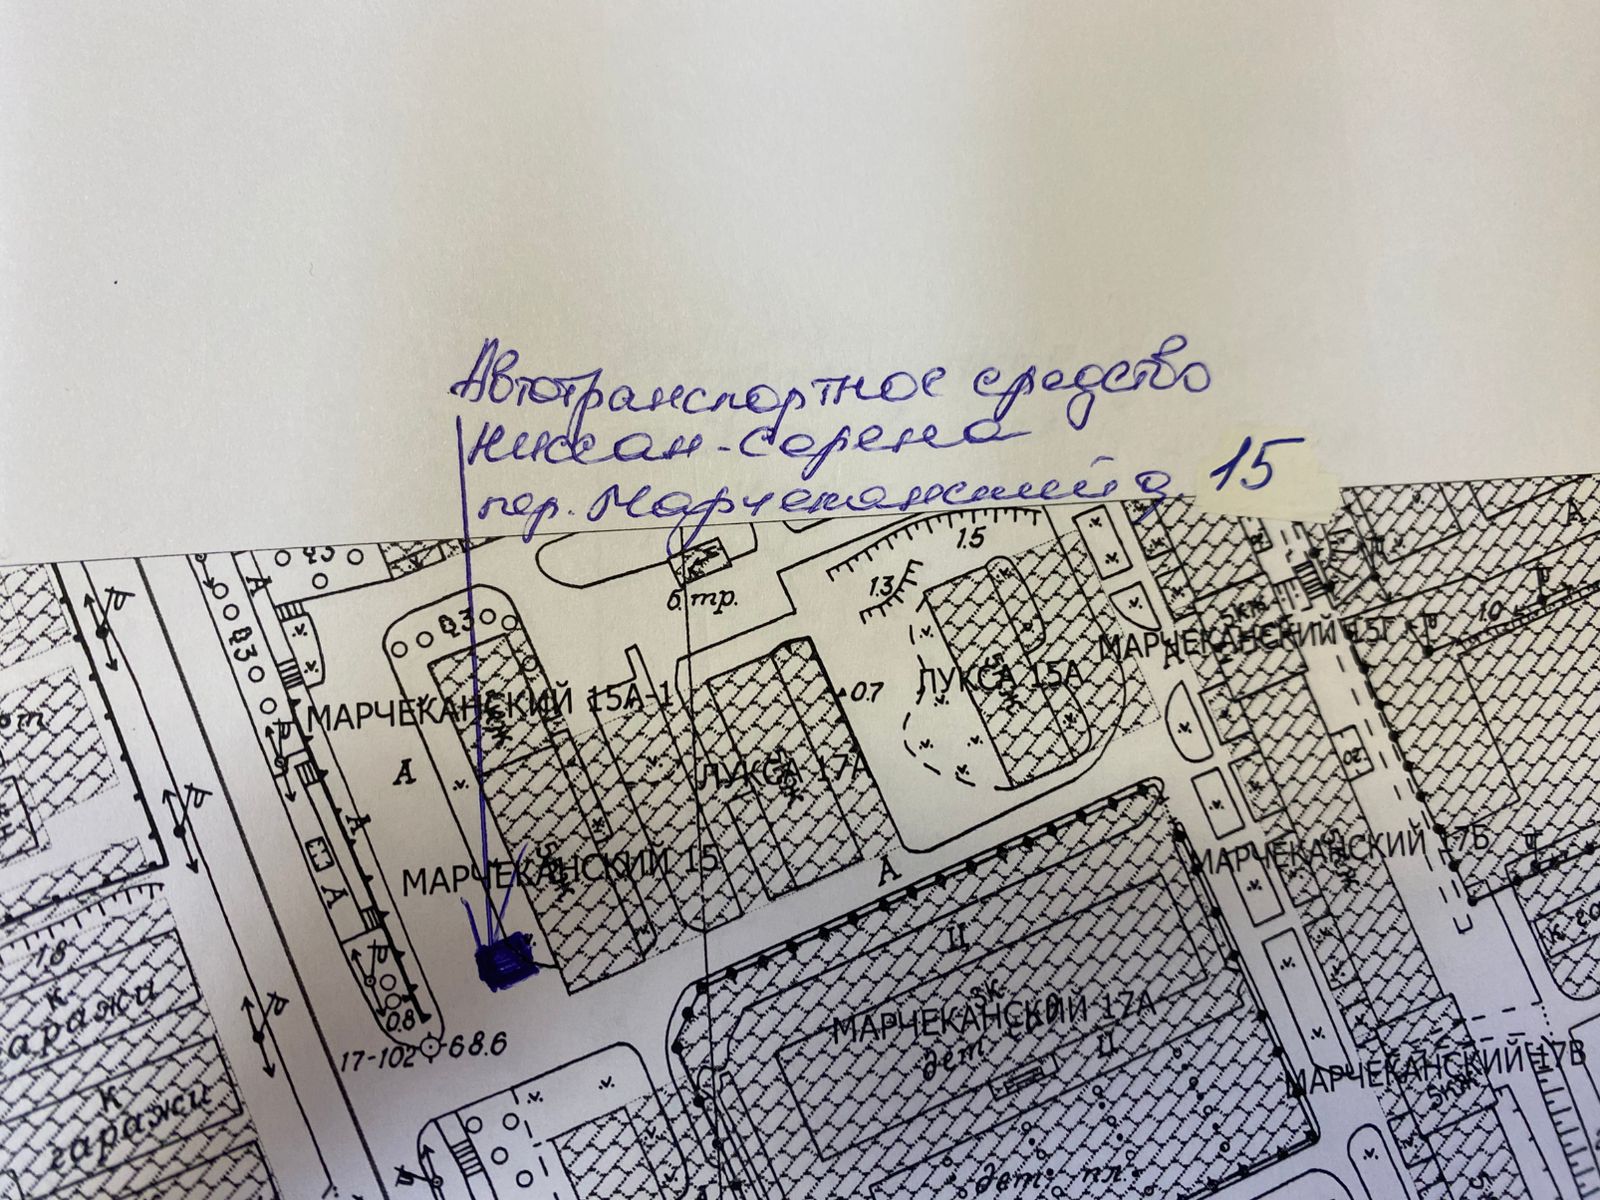 Автотранспортное средство
Ниссан-Серена
пер. Марчеканский д 15
1.5
1.3
б. тр.
МАРЧЕКАНСКИЙ 15Г
1.0
ЛУКСА 15А
0.7
0.3
0.3
МАРЧЕКАНСКИЙ 15А-1
А
ЛУКСА 17А
МАРЧЕКАНСКИЙ 17Б
МАРЧЕКАНСКИЙ 15
А
А
А
Ц
1.8
к.
гаражи
0.8
17-102 68.6
МАРЧЕКАНСКИЙ 17А
дет. сад
Ц
МАРЧЕКАНСКИЙ 17В
к
гаражи
дет. пл.